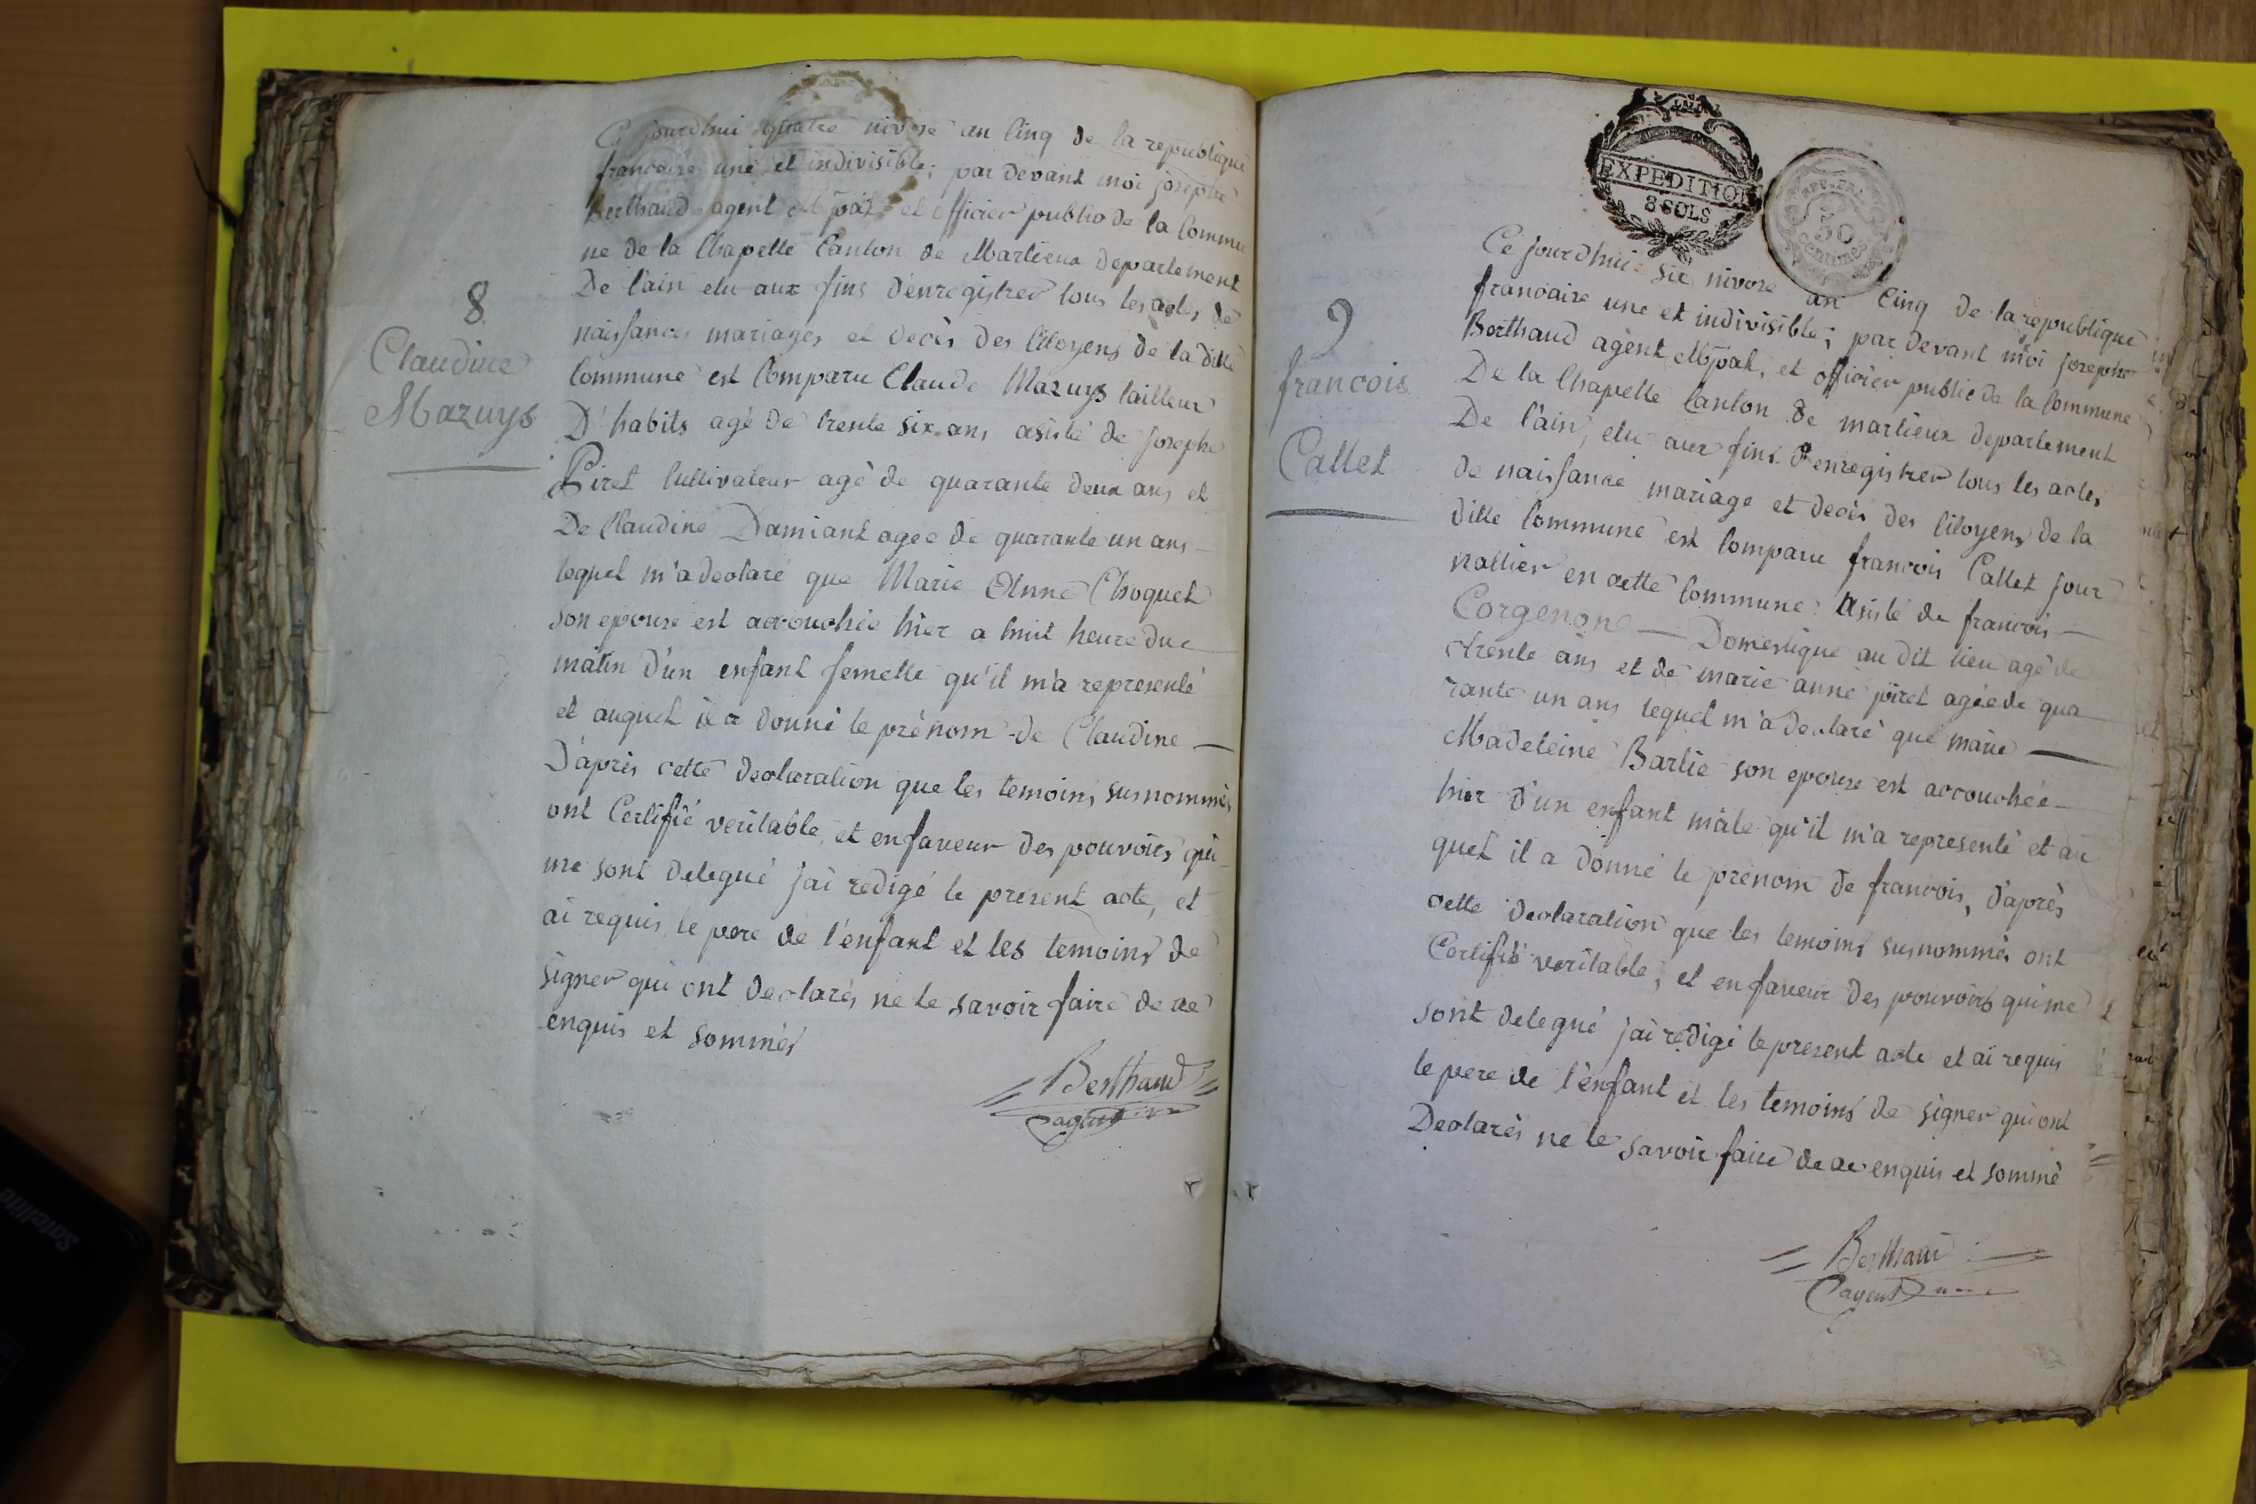 Ce jourdhui quatre nivose an Cinq de la republique
francaise une et indivisible; par devant moi josephe
Berthaud agent et officier public de la Commu
ne de la Chapelle Canton de Marlieux departement
De l'ain elu aux fins d'enregistrer tous les actes de
naissances mariages et decès des Citoyens de la ditte
Commune est Comparu Claude Mazuys tailleur
D'habits agé de trente six ans asisté de josephe
Piret Cultivateur agé de quarante deux ans et
De Claudine Damiant agee de quarante un ans
lequel m'a declaré que Marie Anne Choquet
son epouse est accouchée hier a huit heure du
matin d'un enfant femelle qu'il m'a representé
et auquel il a donné le prénom de Claudine
D'après cette declaration que les temoins susnommés
ont Certifié veritable, et en faveur des pouvoirs qui
me sont delegué j'ai redigé le present acte, et
ai requis le pere de l'enfant et les temoins de
signer qui ont declarés ne le savoir faire de ce
enquis et sommés
Berthaud
agent
8
Claudine
Mazuys
EXPEDITION
8 SOLS
REP. FRA.
50
centimes
Ce jourdhui six nivose an Cinq de la republique
francaise une et indivisible; par devant moi josephe
Berthaud agent Mpal, et officier public de la Commune
De la Chapelle Canton de marlieux departement
De l'ain, elu aux fins d'enregistrer tous les actes
de naissance mariage et decès des Citoyens de la
ditte Commune est Comparu francois Callet jour
nallier en cette Commune. Asisté de francois
Corgenon Domestique au dit lieu agé de
trente ans et de marie anne piret agée de qua
rante un ans lequel m'a declaré que marie
Madeleine Barlie son epouse est accouchée
hier d'un enfant mâle qu'il m'a representé et au
quel il a donné le prénom de francois, d'après
cette declaration que les temoins susnommés ont
Certifié veritable; et en faveur des pouvoirs qui me
sont delegué j'ai redigé le present acte et ai requis
le pere de l'enfant et les temoins de signer qui ont
Declarés ne le savoir faire de ce enquis et sommé
Berthaud
agent
9
francois
Callet